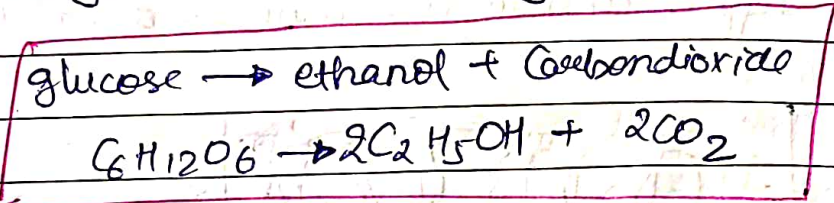 glucose → ethanol + Carbondioxide
C6H12O6 → 2C2H5OH + 2CO2